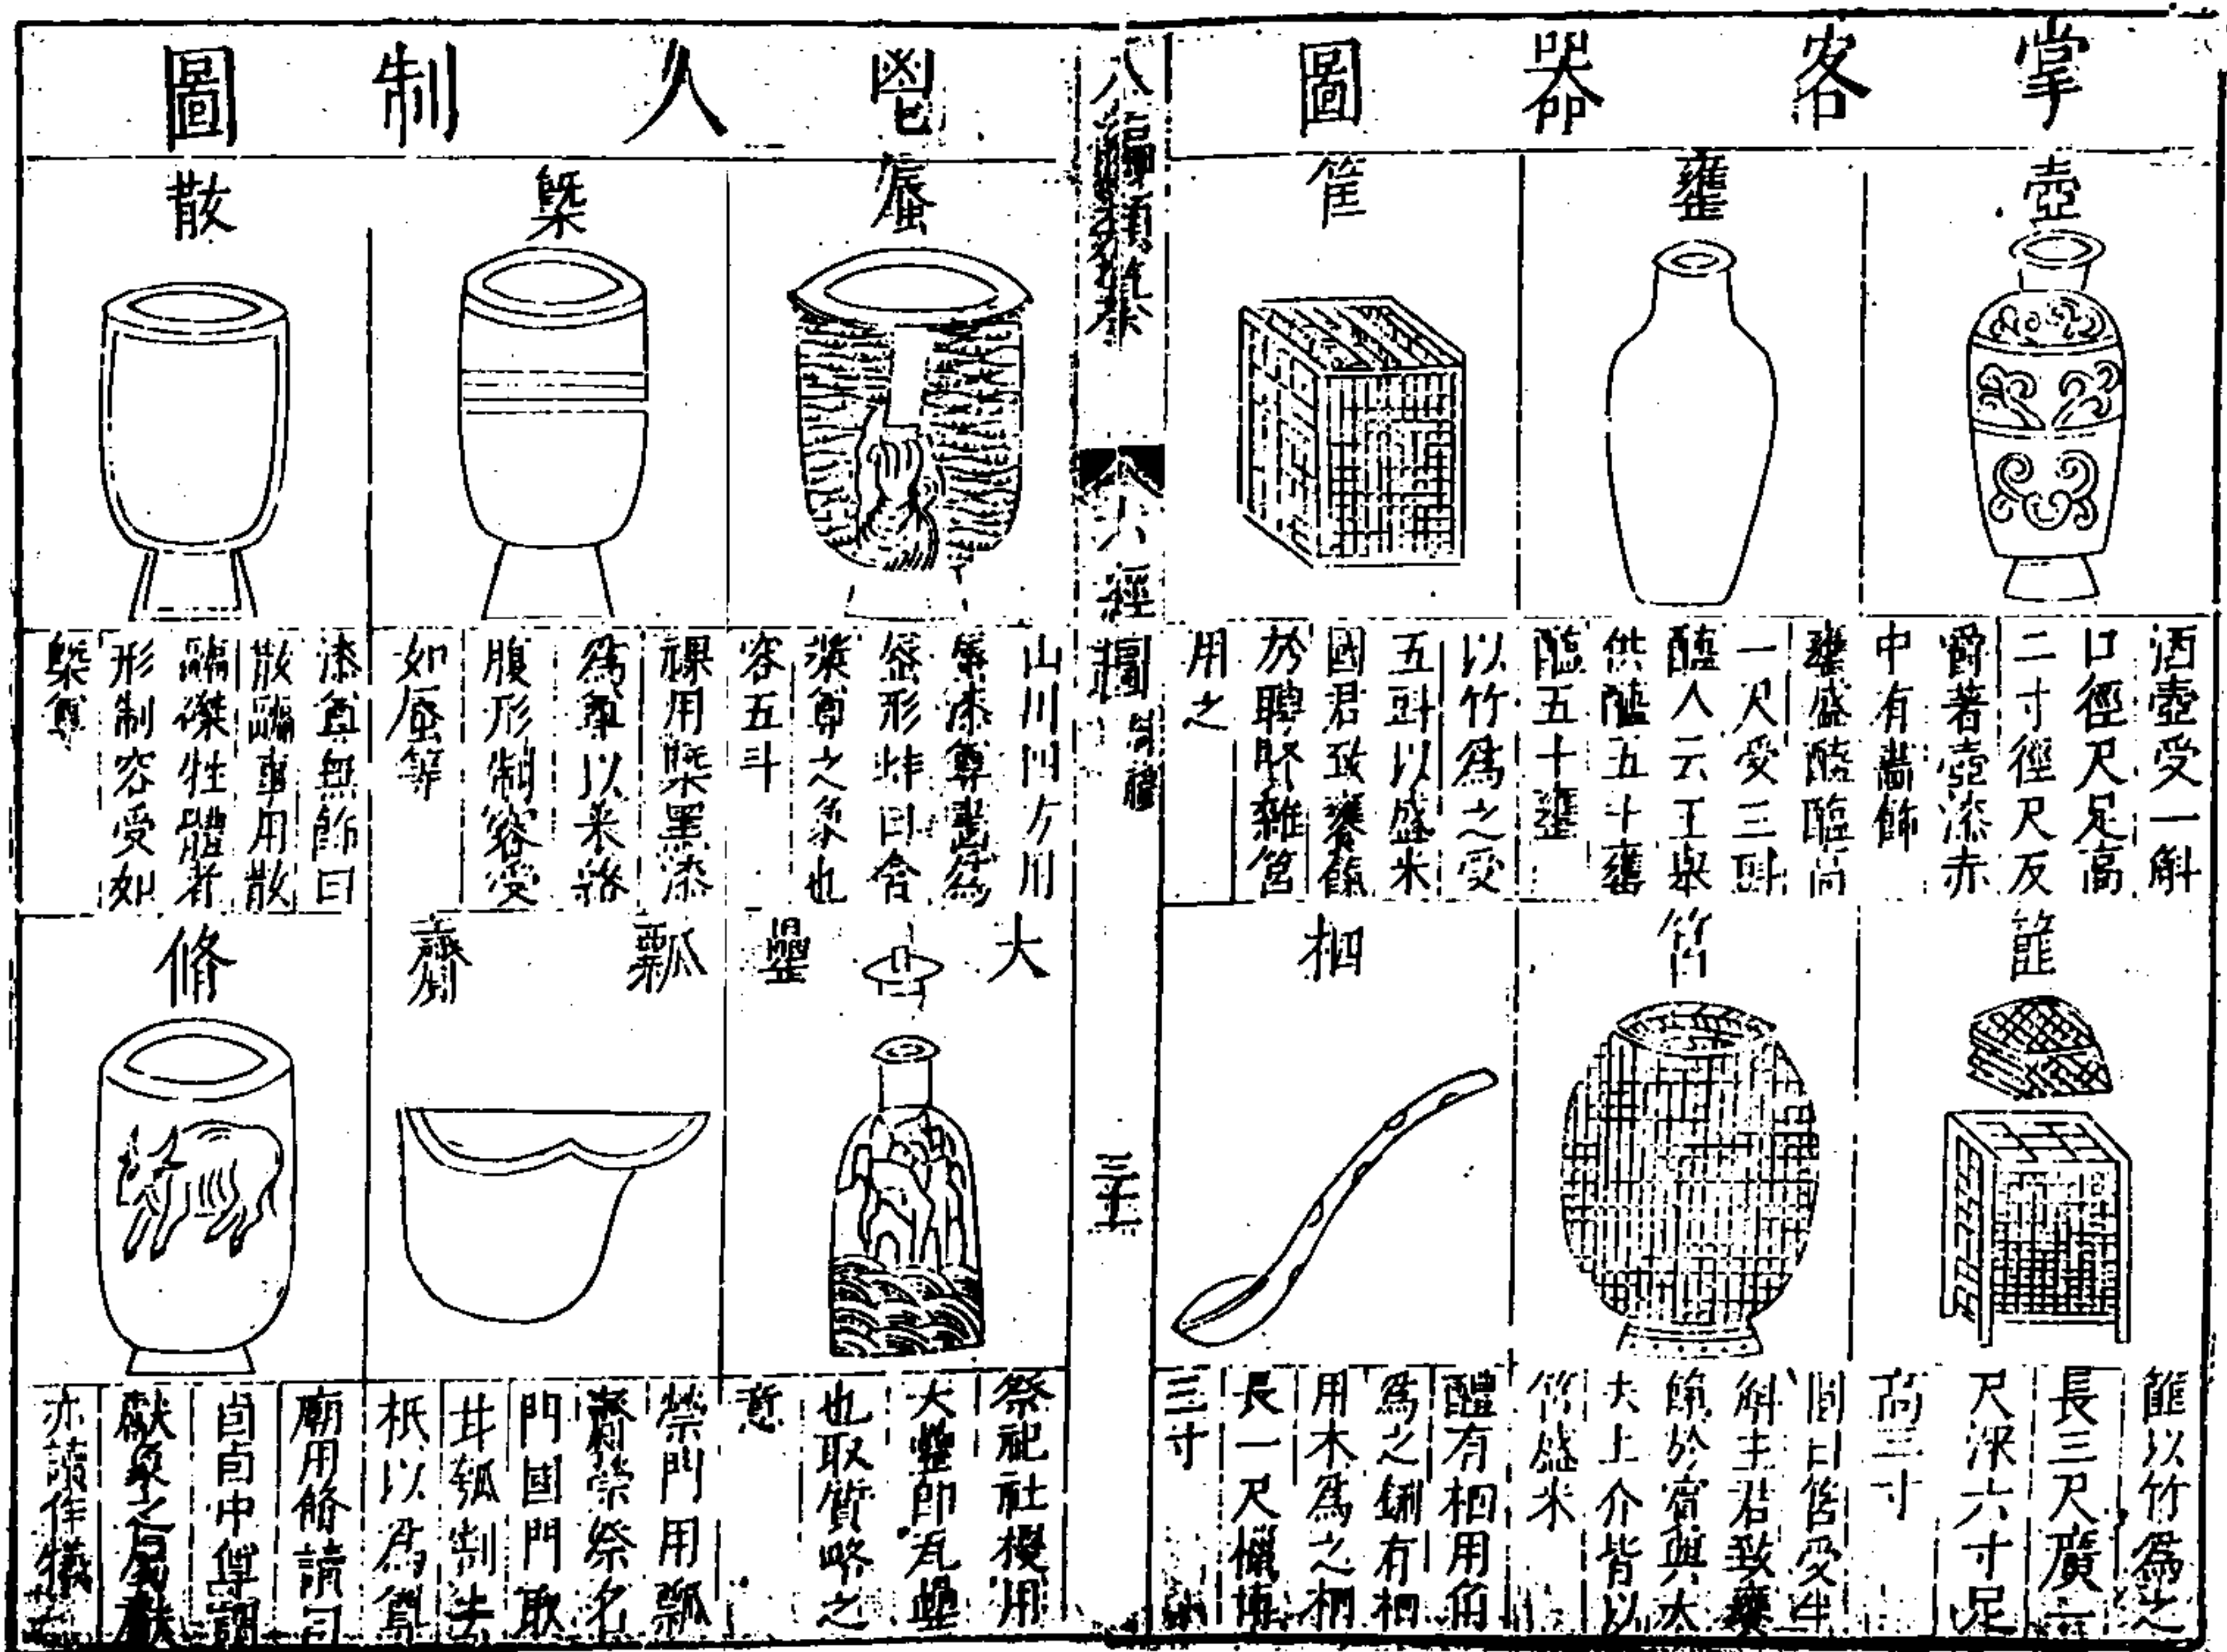 掌客器圖
壺
酒壺受一斛
口徑尺足高
二寸徑尺反
爵著壺漆赤
中有畫飾
罋
罋盛醯醢高
一尺受三㪷
醢人云王舉
供醢五十罋
醢五十罋
筐
以竹為之受
五㪷以盛米
國君致饔餼
於聘賓雜筥
用之
篚
篚以竹為之
長三尺廣一
尺深六寸足
高三寸
筥
圓口筥受半
斛主君致饔
餼於賓與大
夫上介皆以
竹盛米
柶
醴有柶用角
為之鉶有柶
用木為之柶
長一尺櫼博
三寸
八編類纂
六經圖
周禮
三十五
鬯人制圖
蜃
山川四方用
蜃漆尊畫為
蜃形蚌曰含
漿尊之象也
容五斗
槩
祼用槩黑漆
為尊以朱絡
腹形制容受
如蜃等
散
漆尊無飾曰
散疈事用散
疈磔牲體者
形制容受如
槩尊
大罍
祭祀社稷用
大罍即瓦罍
也取質略之
意
瓢齎
禜門用瓢
齎禜祭名
門國門取
甘瓠割去
柢以為尊
脩
廟用脩讀曰
卣卣中尊謂
獻象之屬獻
亦讀作犧